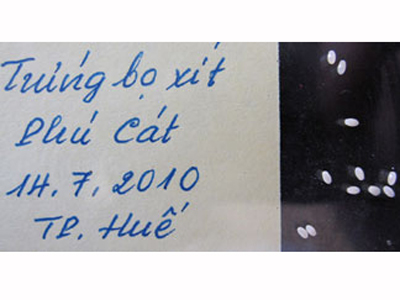 Trứng bọ xít
Phú Cát
14.7.2010
TP. Huế